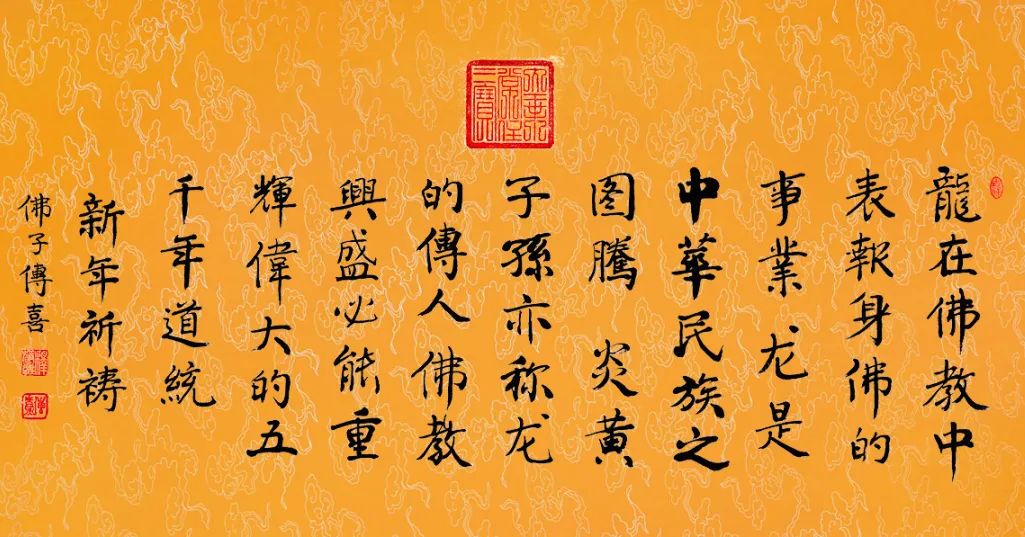 龍在佛教中
表報身佛的
事業 龙是
中華民族之
图騰 炎黄
子孫亦称龙
的傳人 佛教
興盛必能重
輝偉大的五
千年道統
新年祈禱
佛子傳喜